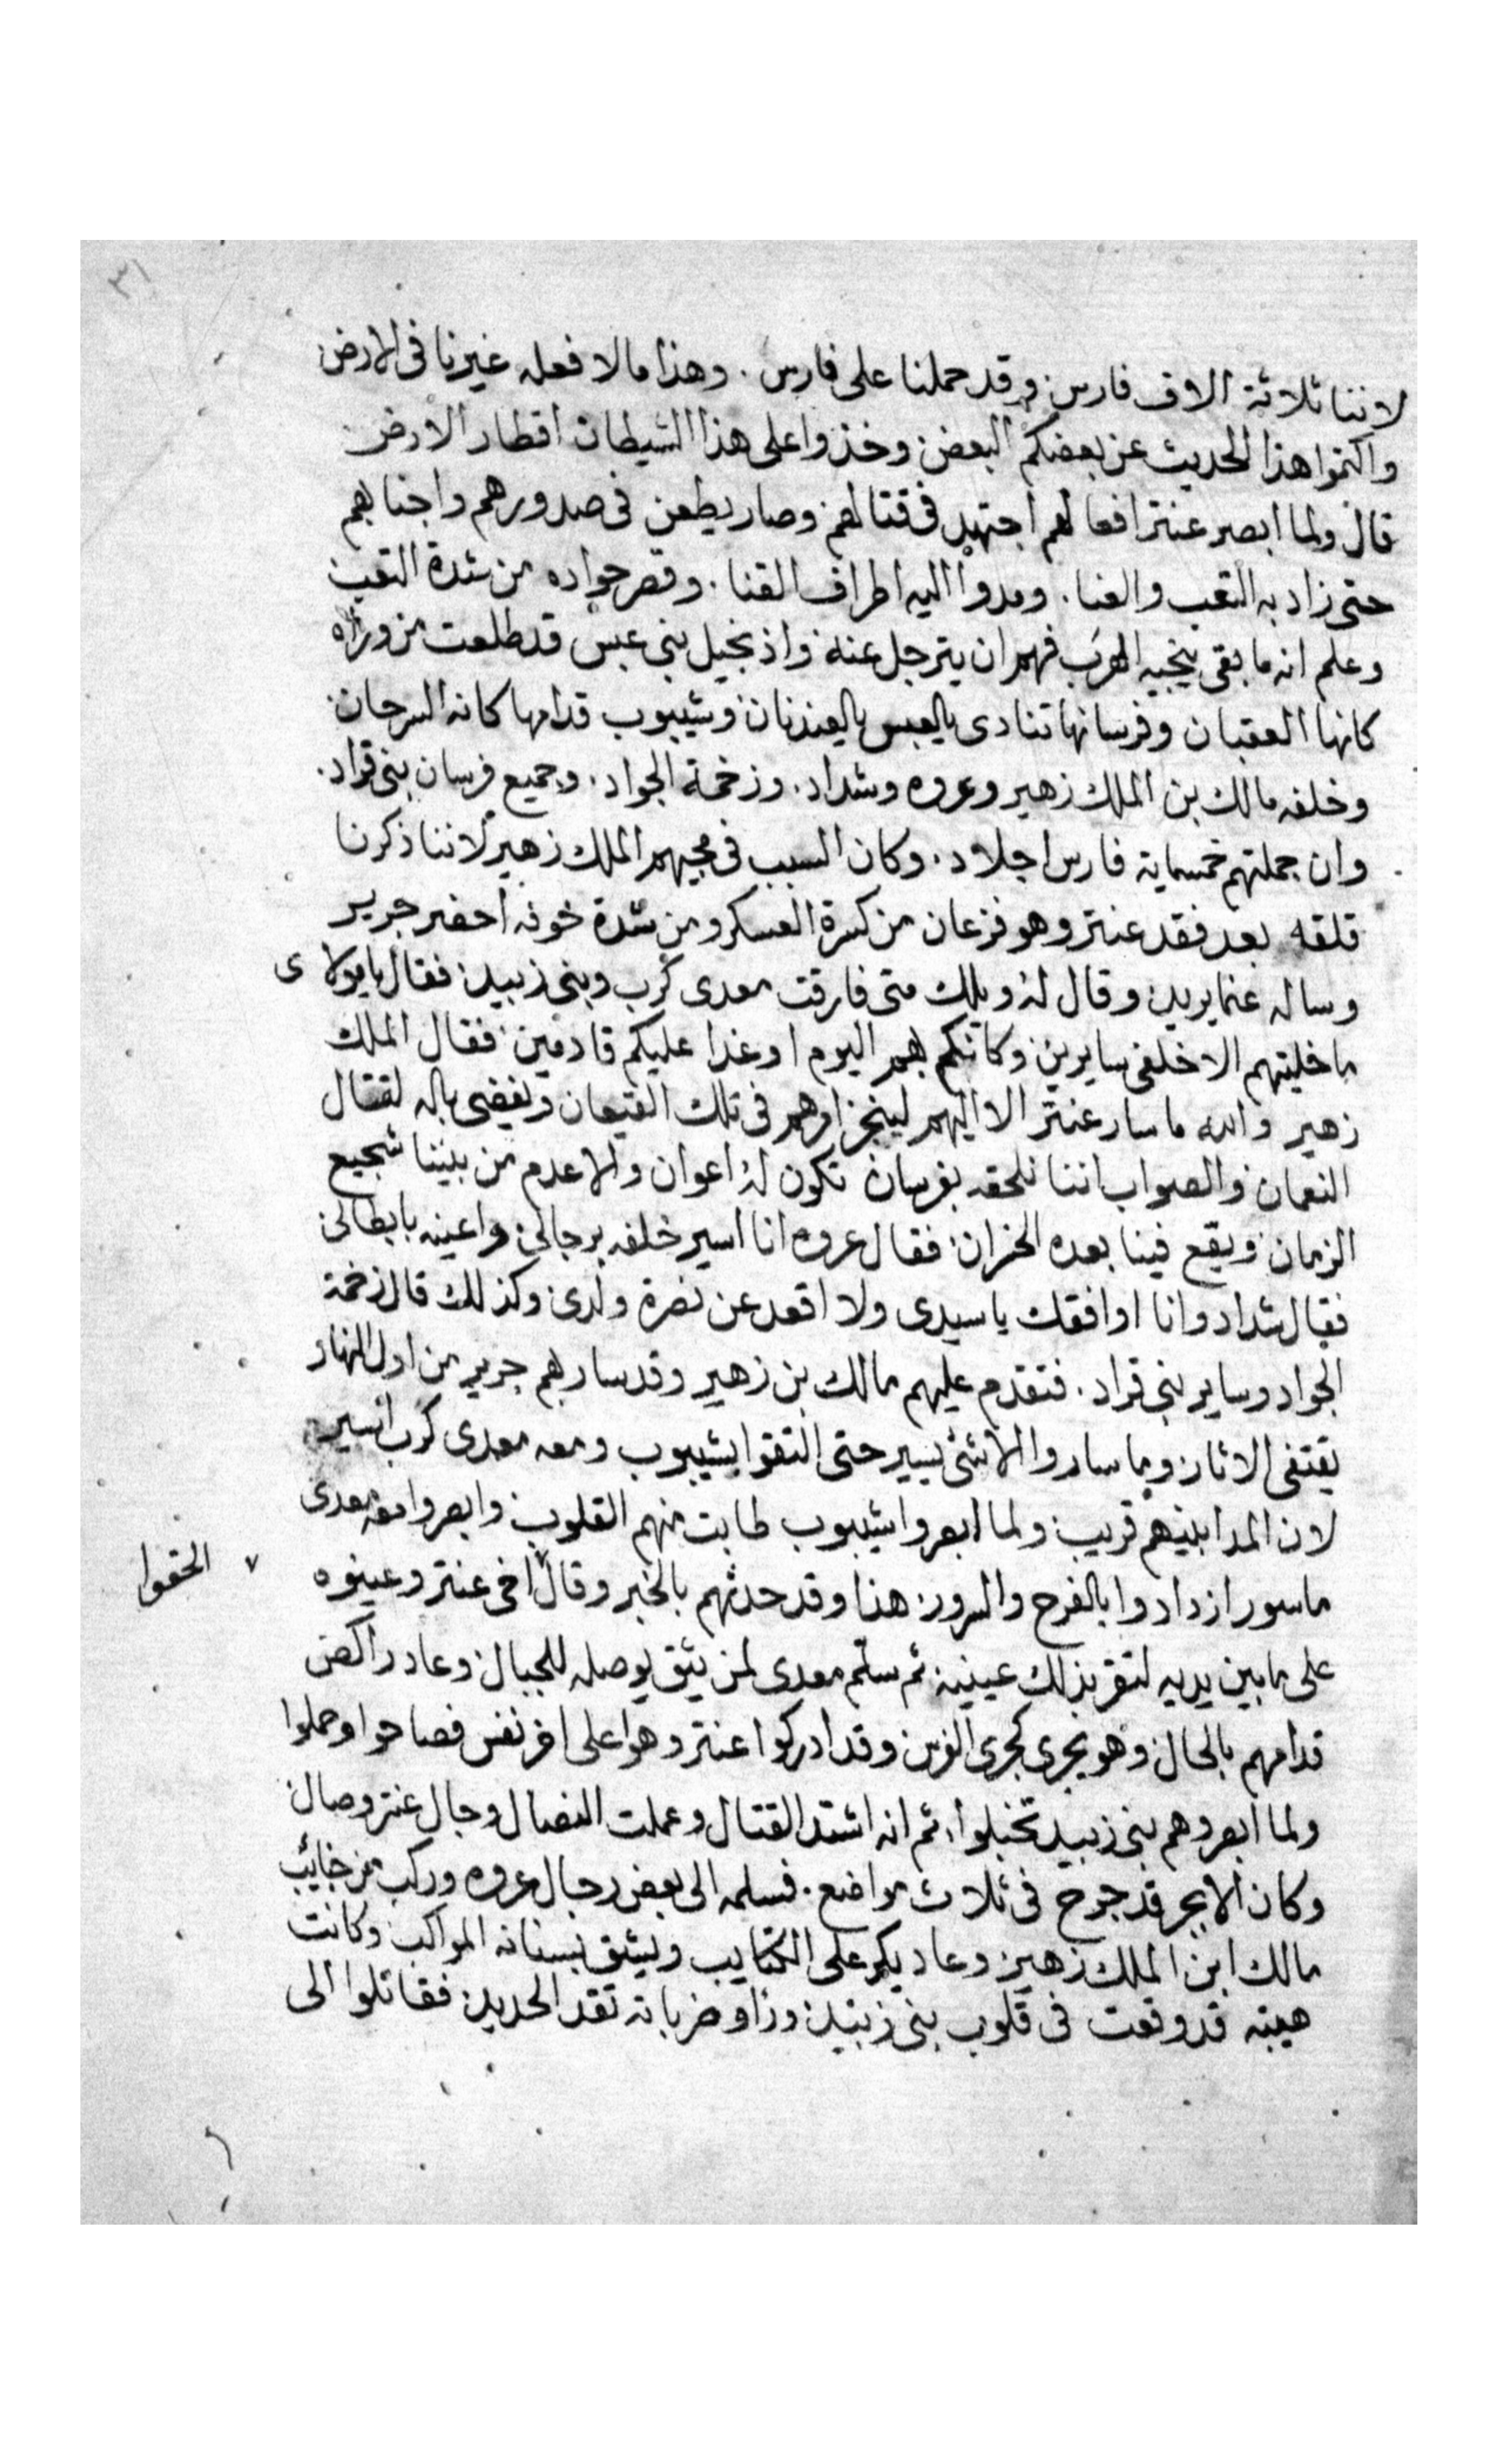 ٣١
لاننا ثلاثة الاف فارس وقد حملنا على فارس . وهذا ما لا فعله غيرنا فى الارض
واكتموا هذا الحديث عن بعضكم البعض وخذوا على هذا الشيطان اقطار الارض
قال ولما ابصر عنتر افعالهم اجتهد فى قتالهم وصار يطعن فى صدورهم واجنابهم
حتى زاد به التعب والعنا . ومدوا اليه اطراف القنا . وقصر جواده من شدة التعب
وعلم انه ما بقى ينجيه الهرب فهم ان يترجل عنه واذ بخيل بنى عبس قد طلعت من وراه
كانها العقبان وفرسانها تنادى يالعبس يالعدنان وشيبوب قدامها كانه السرحان
وخلفه مالك بن الملك زهير وعروه وشداد . وزخمة الجواد . وجميع فرسان بنى قراد .
وان جملتهم خمسماية فارس اجلاد . وكان السبب فى مجيهم الملك زهير لاننا ذكرنا
قلقه بعد فقد عنتر وهو فزعان من كسرة العسكر ومن شدة خوفه احضر جرير
وساله عنما يريد وقال له ويلك متى فارقت معدى كرب وبنى زبيد فقال يا مولاى
ما خليتهم الا خلفى سايرين وكانكم بهم اليوم او غدا عليكم قادمين فقال الملك
زهير والله ما سار عنتر الا اليهم لينجز امرهم فى تلك القيعان ويفضى باله لقتال
النعمان والصواب اننا نلحقه بفرسان تكون له اعوان والا عدم من بيننا شجيع
الزمان ويقع فينا بعده الخسران فقال عروه انا اسير خلفه برجالى واعينه بابطالى
فقال شداد وانا اوافقك يا سيدى ولا اقعد عن نصرة ولدى وكذلك قال زخمة
الجواد وساير بنى قراد . فتقدم عليهم مالك بن زهير وقد سار بهم جرير من اول النهار
يقتفى الاثار وما ساروا الا شئ يسير حتى التقوا بشيبوب ومعه معدى كرب اسير
لان المدا بينهم قريب ولما ابصروا شيبوب طابت منهم القلوب وابصروا معه معدى
ماسور ازدادوا بالفرح والسرور هذا وقد حدثهم بالخبر وقال ٧ اخى عنتر وعينوه
٧ الحقوا
على ما بين يديه لتقر بذلك عينيه ثم سلم معدى لمن يثق يوصله للجبال وعاد راكض
قدامهم بالحال وهو يجرى كجرى الفرس وقد ادركوا عنتر وهوا على اخر نفس فصاحوا وحملوا
ولما ابصروهم بنى زبيد تخبلوا . ثم انه اشتد القتال وعملت النصال وجال عنتر وصال
وكان الابجر قد جرح فى ثلاث مواضع . فسلمه الى بعض رجال عروه وركب من جنايب
مالك ابن الملك زهير وعاد يكر على الكتايب ويشق بسنانه المواكب وكانت
هيبته قد وقعت فى قلوب بنى زبيد وراو ضرباته تقد الحديد فقاتلوا الى